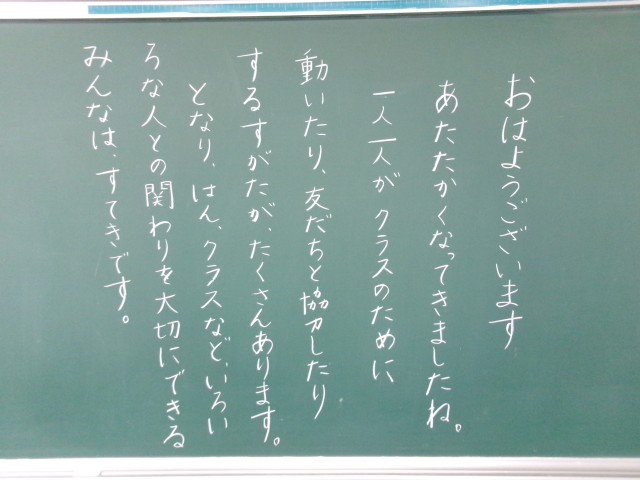 おはようございます
あたたかくなってきましたね。
一人一人がクラスのために
動いたり、友だちと協力したり
するすがたが、たくさんあります。
となり、はん、クラスなど、いろい
ろな人との関わりを大切にできる
みんなは、すてきです。